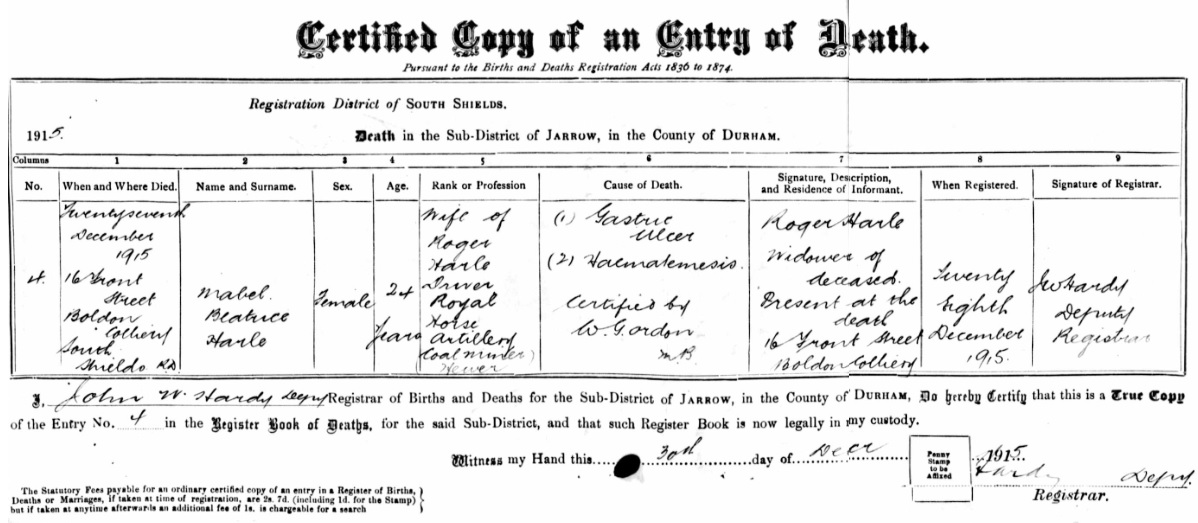 Certified Copy of an Entry of Death.
Pursuant to the Births and Deaths Registration Acts 1836 to 1874.
Registration District of SOUTH SHIELDS.
1915. Death in the Sub-District of JARROW, in the County of DURHAM.
Columns 1 2 3 4 5 6 7 8 9
No. When and Where Died. Name and Surname. Sex. Age. Rank or Profession Cause of Death. Signature, Description, and Residence of Informant. When Registered. Signature of Registrar.
4.
Twenty seventh
December
1915
16 Front
Street
Boldon
Colliery
South
Shields R.D.
Mabel
Beatrice
Harle
Female
24
years
Wife of
Roger
Harle
Driver
Royal
Horse
Artillery
(Coal miner)
Hewer
(1) Gastric
Ulcer
(2) Haematemesis.
Certified by
W. Gordon
M.B.
Roger Harle
Widower of
deceased.
Present at the
death
16 Front Street
Boldon Colliery
Twenty
Eighth
December
1915.
JW Hardy
Deputy
Registrar
I, John W. Hardy Depy Registrar of Births and Deaths for the Sub-District of JARROW, in the County of DURHAM, Do hereby Certify that this is a True Copy
of the Entry No. 4 in the Register Book of Deaths, for the said Sub-District, and that such Register Book is now legally in my custody.
Witness my Hand this 30th day of Decr 1915.
Penny
Stamp
to be
Affixed
Hardy Depy.
Registrar.
The Statutory Fees payable for an ordinary certified copy of an entry in a Register of Births,
Deaths or Marriages, if taken at time of registration, are 2s. 7d. (including 1d. for the Stamp)
but if taken at anytime afterwards an additional fee of 1s. is chargeable for a search